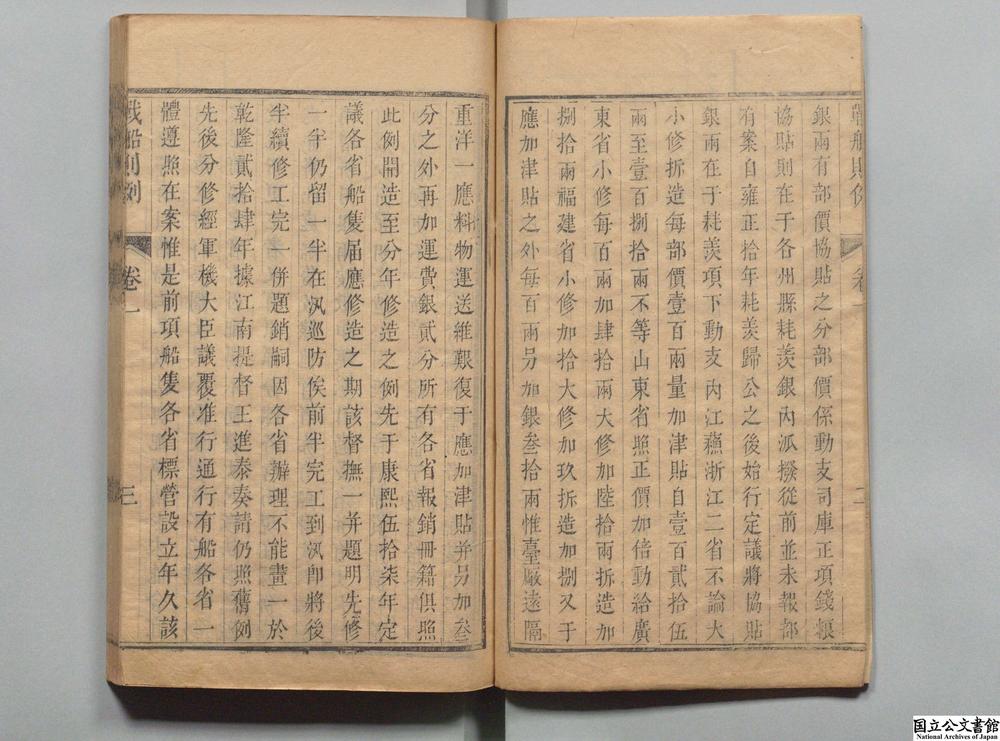 戰船則例
卷一
二
銀兩有部價協貼之分部價係動支司庫正項錢粮
協貼則在于各州縣耗羨銀內派撥從前並未報部
有案自雍正拾年耗羨歸公之後始行定議將協貼
銀兩在于耗羨項下動支內江蘓浙江二省不論大
小修拆造每部價壹百兩量加津貼自壹百貳拾伍
兩至壹百捌拾兩不等山東省照正價加倍動給廣
東省小修每百兩加肆拾兩大修加陸拾兩拆造加
捌拾兩福建省小修加拾大修加玖拆造加捌又于
應加津貼之外每百兩另加銀叁拾兩惟臺厰遠隔
重洋一應料物運送維艱復于應加津貼并另加叁
分之外再加運費銀貳分所有各省報銷冊籍俱照
此例開造至分年修造之例先于康熙伍拾柒年定
議各省船隻届應修造之期該督撫一并題明先修
一半仍留一半在汛巡防俟前半完工到汛卽將後
半續修工完一併題銷嗣因各省辦理不能畫一於
乾隆貳拾肆年據江南提督王進泰奏請仍照舊例
先後分修經軍機大臣議覆准行通行有船各省一
體遵照在案惟是前項船隻各省標營設立年久該
戰船則例
卷一
三
国立公文書館
National Archives of Japan